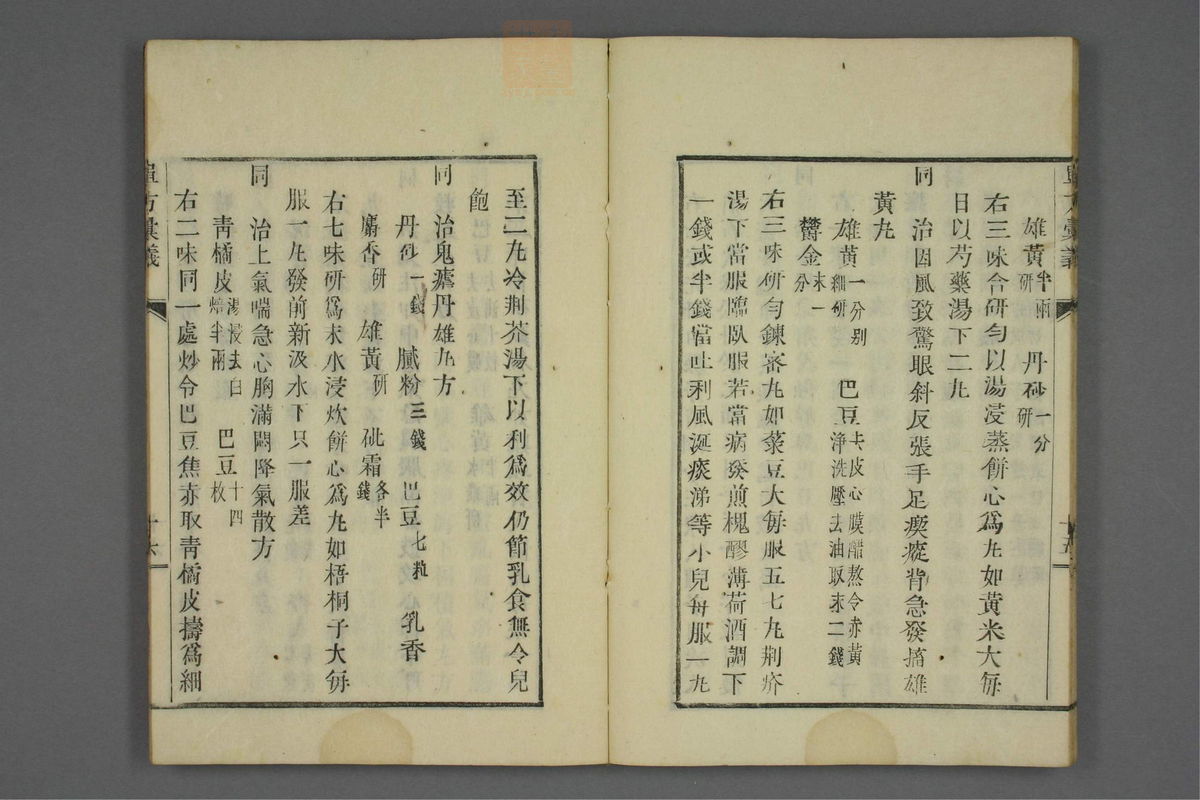 雄黃半兩研　丹砂一分研
右三味合研勻以湯浸蒸餅心爲丸如黃米大每
日以芍藥湯下二丸
同　治因風致驚眼斜反張手足瘈瘲背急發搐雄
黃丸
雄黃一分别細研　巴豆去皮心膜醋熬令赤黃淨洗壓去油取末二錢
鬱金末一分
右三味研勻鍊蜜丸如菉豆大每服五七丸荆芥
湯下當服臨臥服若當病發煎槐膠薄荷酒調下
一錢或半錢當吐利風涎痰涕等小兒每服一丸
至二丸冷荆芥湯下以利爲效仍節乳食無令兒
飽
同　治鬼瘧丹雄丸方
丹砂一錢　膩粉三錢　巴豆七粒　乳香
麝香研　雄黃研　砒霜各半錢
右七味研爲末水浸炊餅心爲丸如梧桐子大每
服一丸發前新汲水下只一服差
同　治上氣喘急心胸滿悶降氣散方
靑橘皮湯浸去白焙半兩　巴豆十四枚
右二味同一處炒令巴豆焦赤取靑橘皮擣爲細
十六